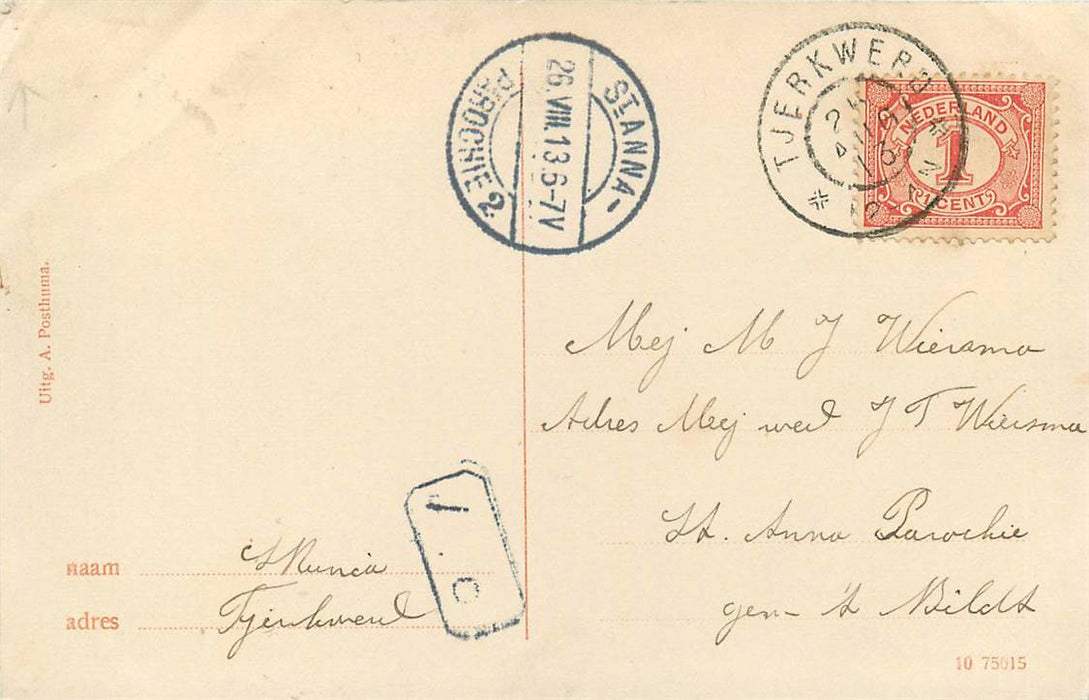 ST ANNA-
PAROCHIE 2
26.VIII.13.6-7V
TJERKWERD
NEDERLAND
1
CENT
Uitg. A. Posthuma.
Mej M J Wiersma
Adres Mej wed J T Wiersma
St. Anna Parochie
gem 't Bildt
naam
adres Tjerkwerd
10 75615